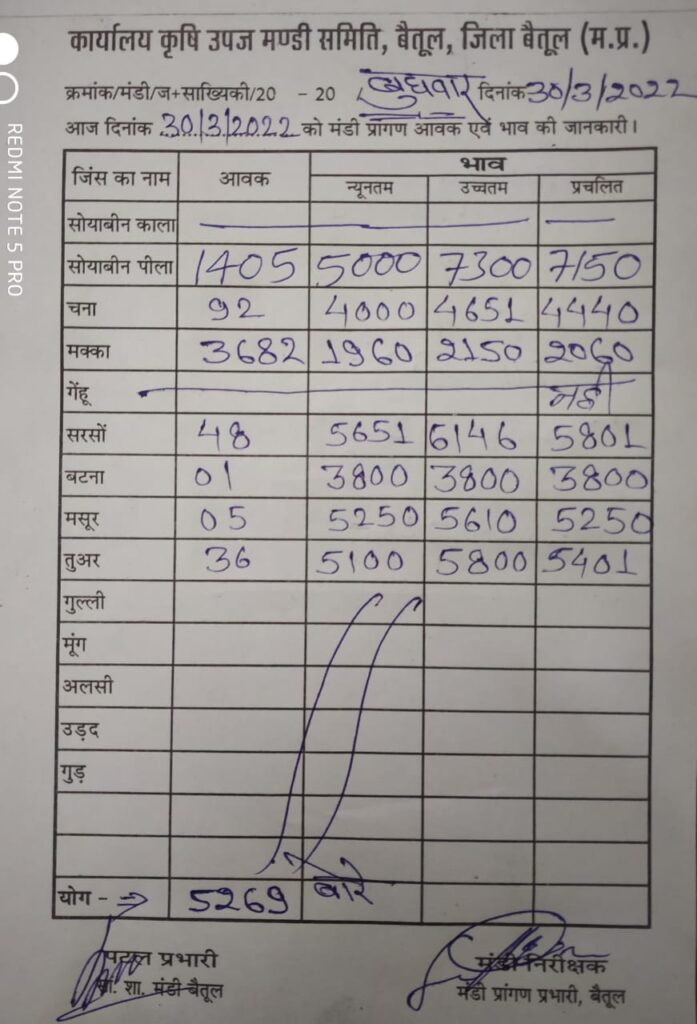 कार्यालय कृषि उपज मण्डी समिति, बैतूल, जिला बैतूल (म.प्र.)
क्रमांक/मंडी/ज+साख्यिकी/20 - 20 बुधवार दिनांक 30/3/2022
आज दिनांक 30/3/2022 को मंडी प्रांगण आवक एवं भाव की जानकारी।
जिंस का नाम आवक भाव
न्यूनतम उच्चतम प्रचलित
सोयाबीन काला
सोयाबीन पीला 1405 5000 7300 7150
चना 92 4000 4651 4440
मक्का 3682 1960 2150 2060
गेंहू नही
सरसों 48 5651 6146 5801
बटना 01 3800 3800 3800
मसूर 05 5250 5610 5250
तुअर 36 5100 5800 5401
गुल्ली
मूंग
अलसी
उड़द
गुड़
योग - 5269 बोरे
प्रभारी मंडी निरीक्षक
शा. मंडी बैतूल मंडी प्रांगण प्रभारी, बैतूल
REDMI NOTE 5 PRO